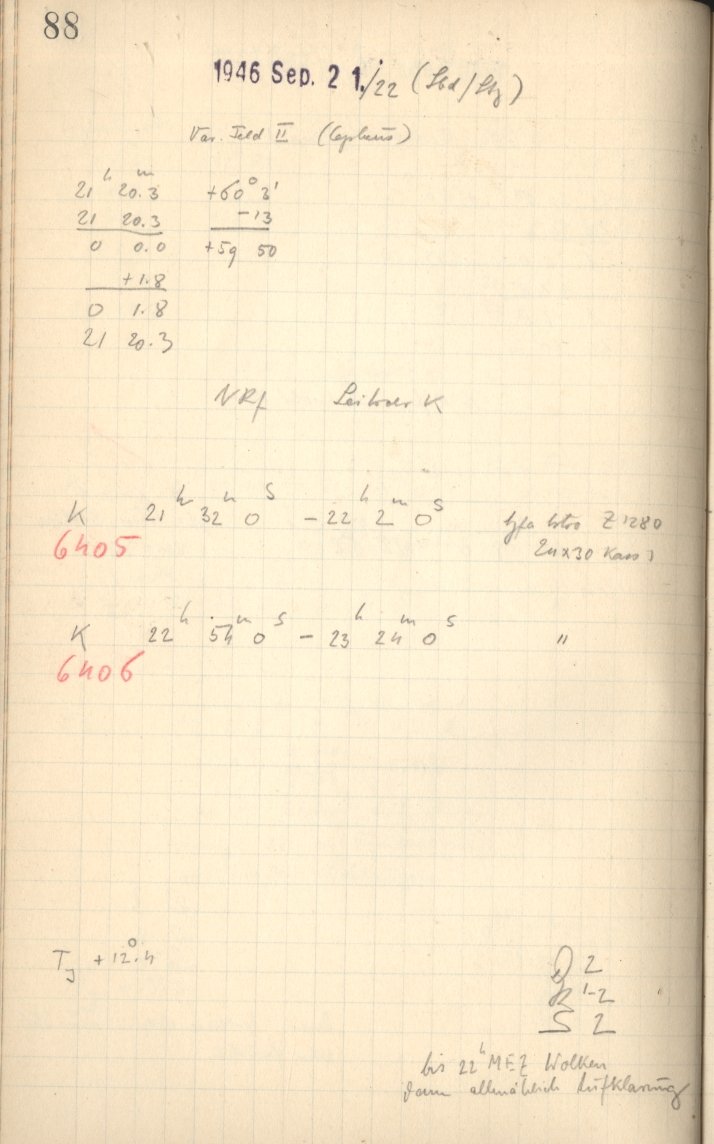 88
1946 Sep. 2 1./22 (Sbd/Stz)
Var. Feld II (Cepheus)
21 h 20.3 m +60° 3'
21 20.3 -13
0 0.0 +59 50
+1.8
0 1.8
21 20.3
NRf K
K 21 h 32 m 0 s - 22 h 2 m 0 s Agfa Astro Z 1280
6405 24x30 Kass
K 22 h 54 m 0 s - 23 h 24 m 0 s "
6406
T +12°.4
D 2
R 1-2
S 2
bis 22 h MEZ Wolken
dann allmählich Aufklarung